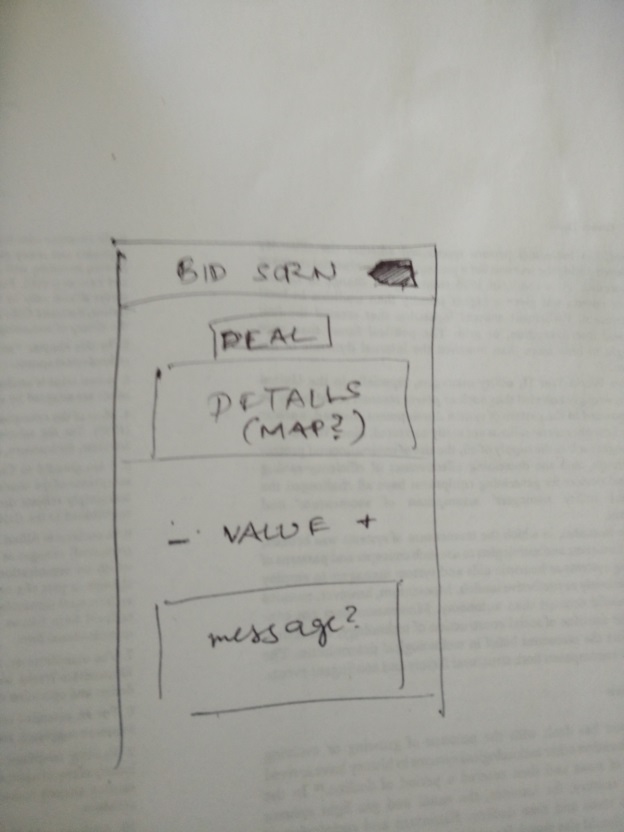 BID SCRN
DEAL
DETAILS
(MAP?)
- VALUE +
message?